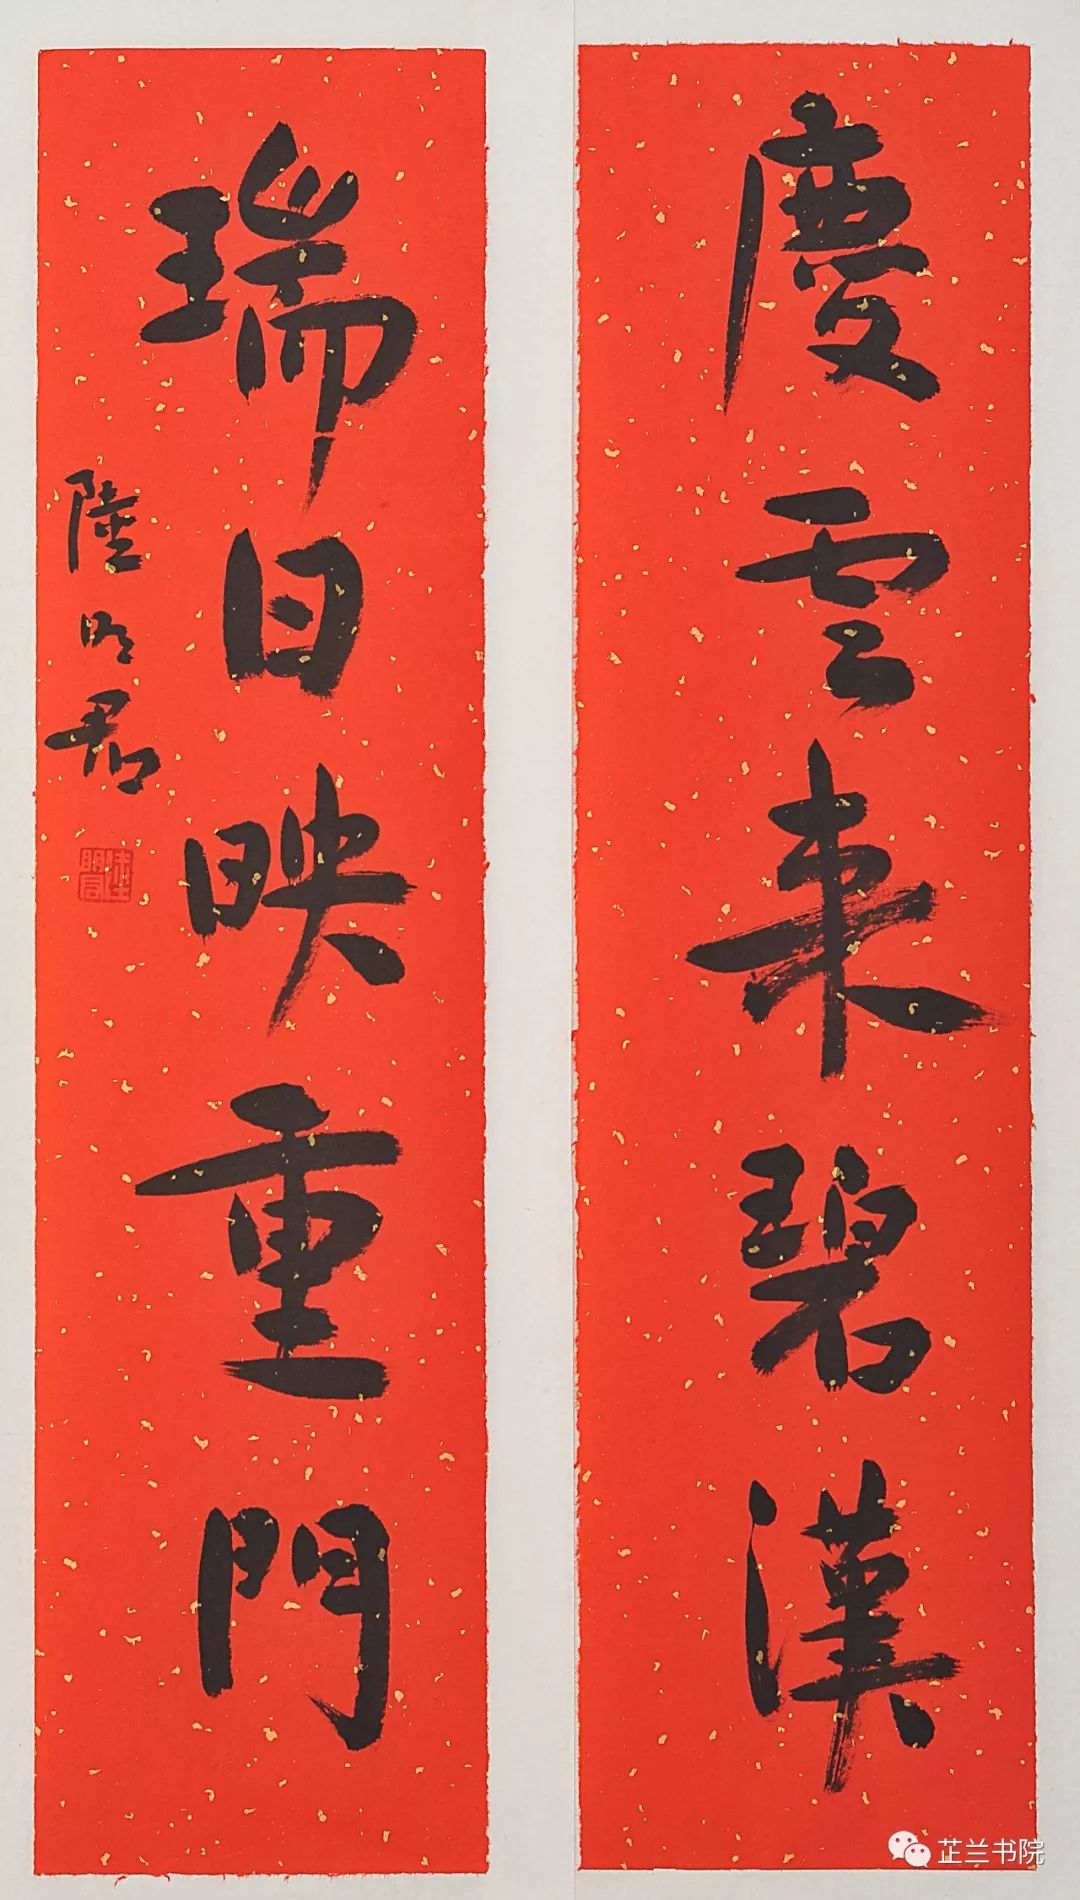 慶雲来碧漢
瑞日映重門
陸明君
陸明君
芷兰书院